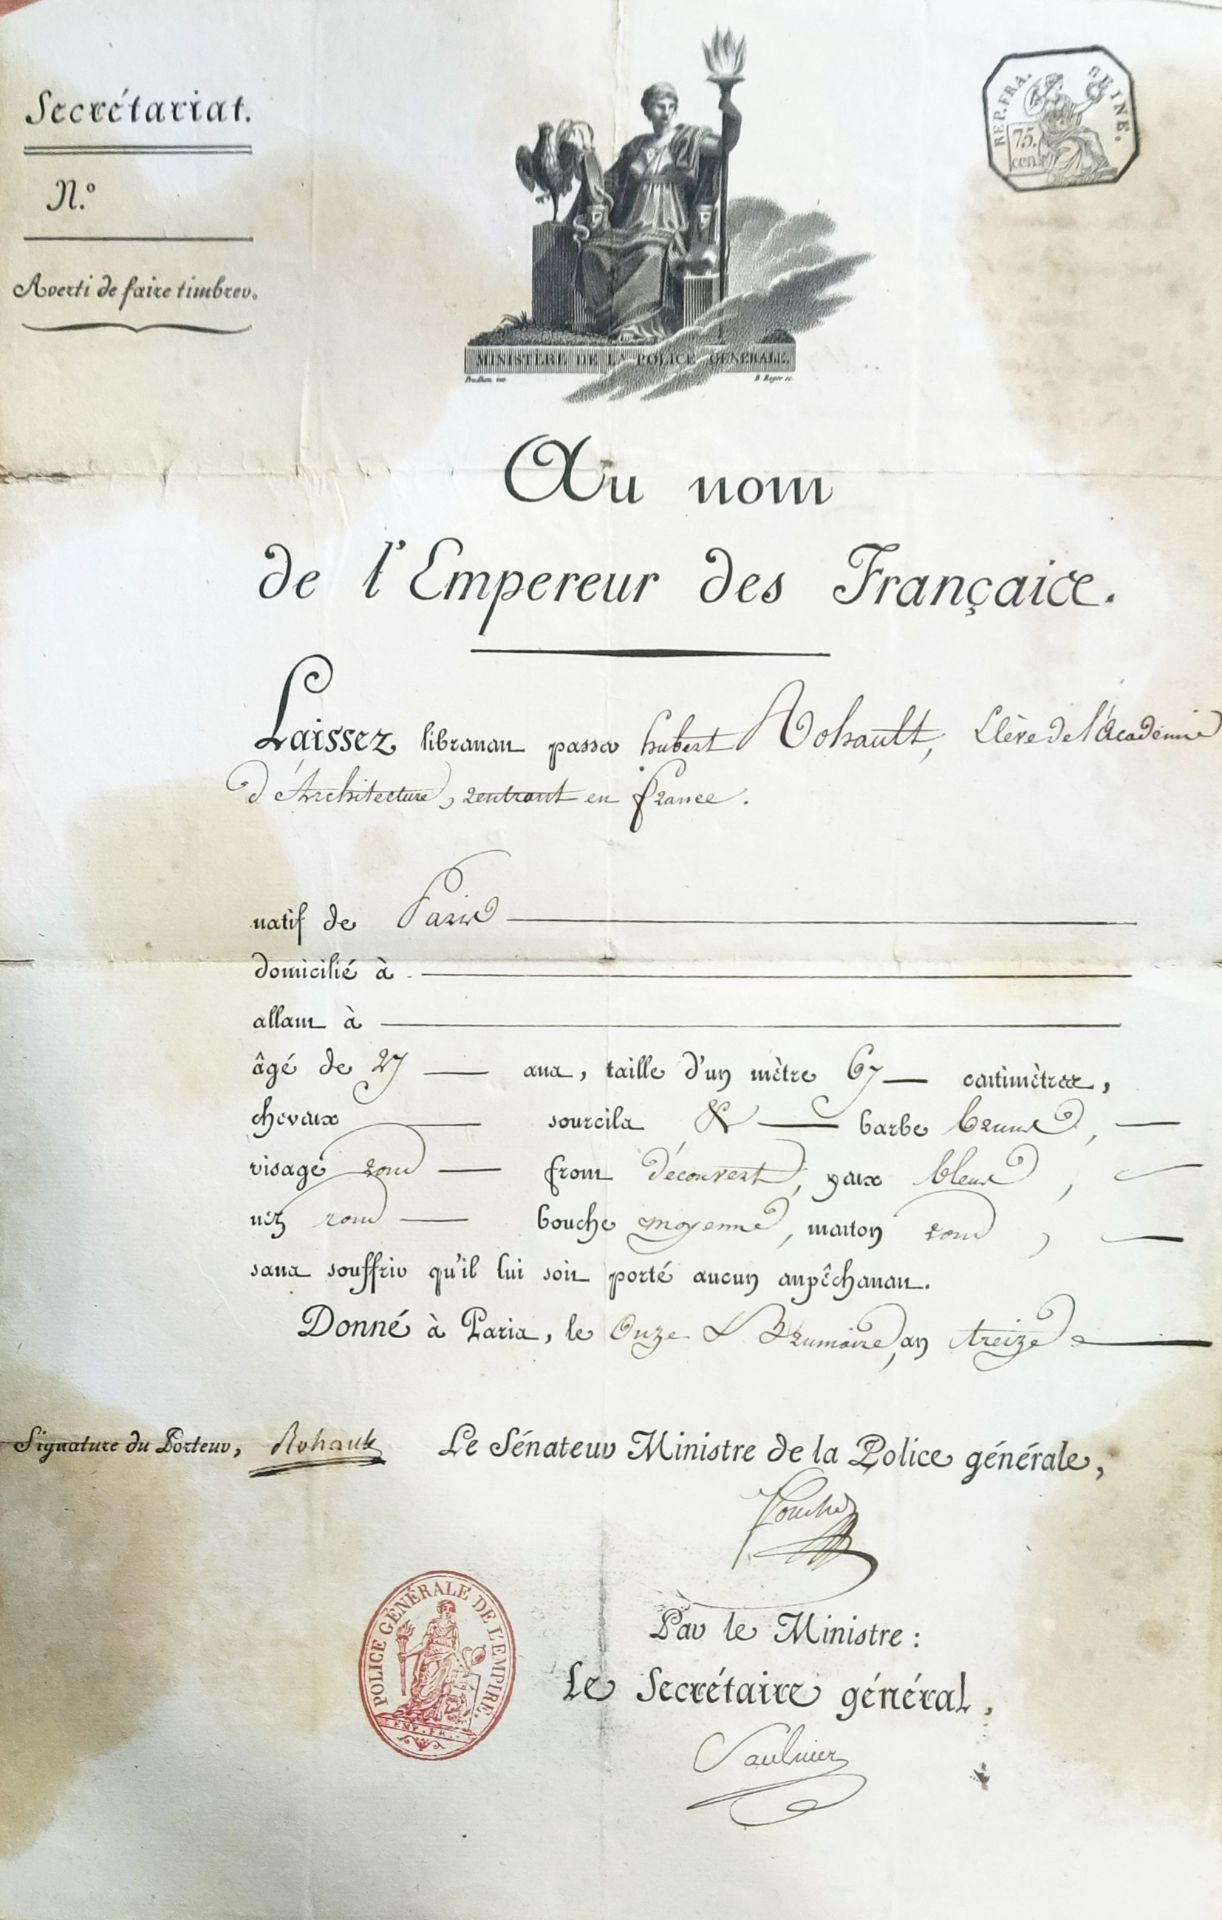 Secrétariat.
N.º
Averti de faire timbrer.
REP. FRA. SEINE.
75. cen.
MINISTÈRE DE LA POLICE GÉNÉRALE.
Prudhon inv.
B. Roger sc.
Au nom
de l'Empereur des Français.
Laissez librement passer hubert Rohault, Elève de l'Académie
d'Architecture, rentrant en france.
natif de Paris
domicilié à
allant à
âgé de 27 ans, taille d'un mètre 67 centimètres,
cheveux sourcils & barbe bruns,
visage rond front découvert, yeux bleus,
nez rond bouche moyenne, menton rond,
sans souffrir qu'il lui soit porté aucun empêchement.
Donné à Paris, le Onze Brumaire, an treize
Signature du Porteur, Rohault
Le Sénateur Ministre de la Police générale,
Fouché
POLICE GÉNÉRALE DE L'EMPIRE.
EMP. FR.
Par le Ministre:
Le Secrétaire général,
Saulnier